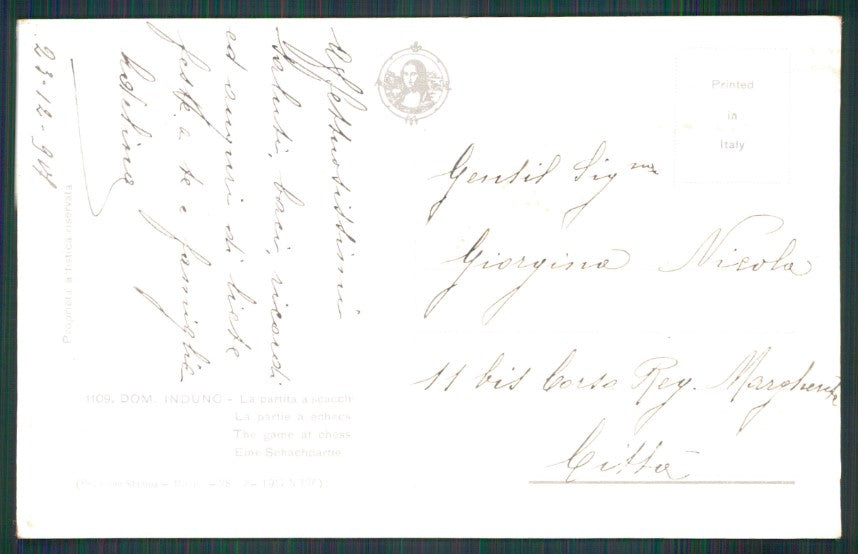 23-12-941
Affettuosissimi
saluti, baci, ricordi
ed auguri di liete
feste a te e famiglia
Printed
in
Italy
Gentil Sig.na
Giorgina Nicola
11 bis Corso Reg. Margherita
Città
Proprietà artistica riservata
1109, DOM. INDUNO - La partita a scacchi
La partie à échecs
The game of chess
Eine Schachpartie